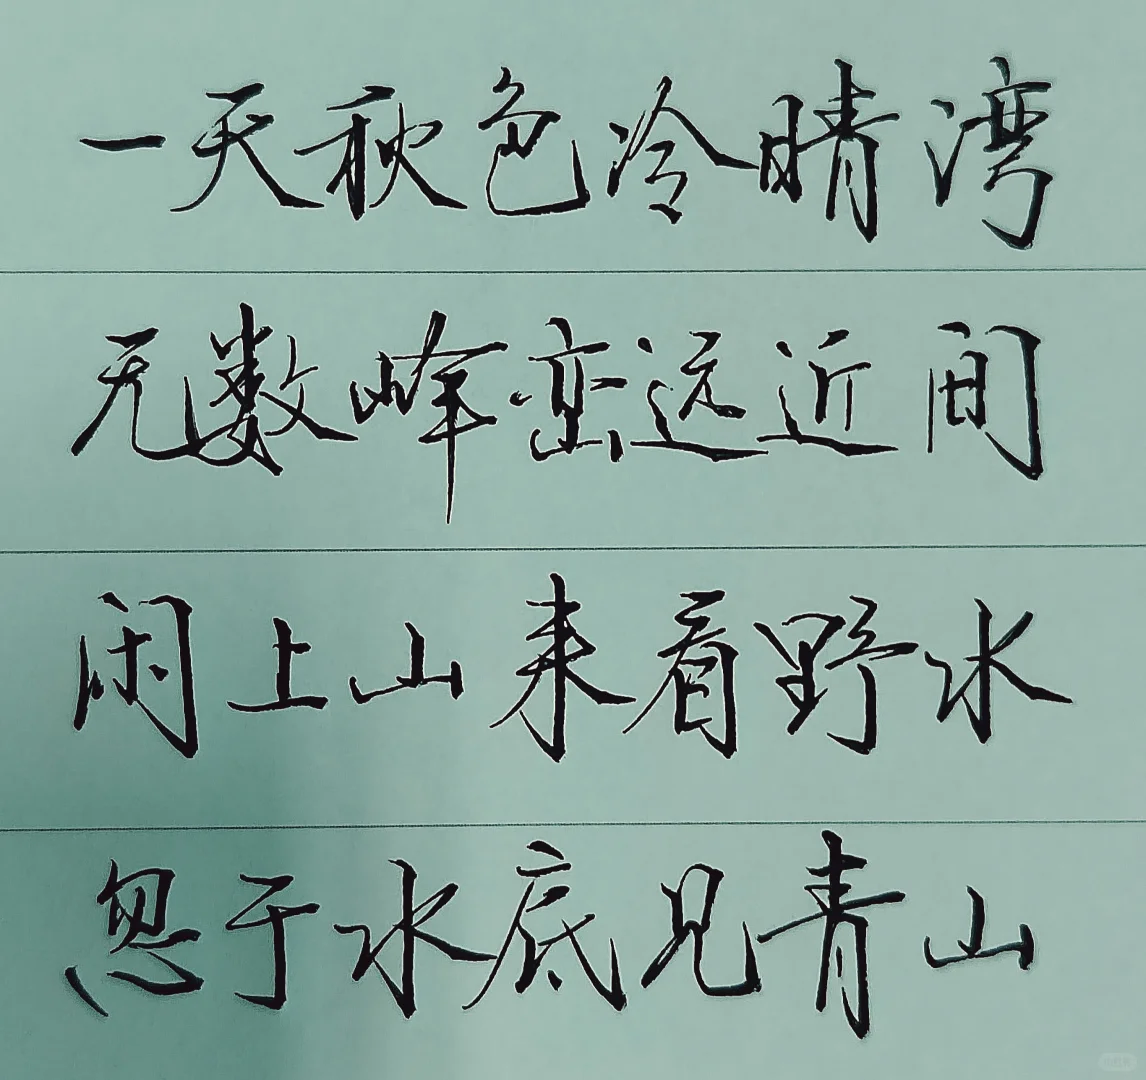 一天秋色冷晴湾
无数峰峦远近间
闲上山来看野水
忽于水底见青山